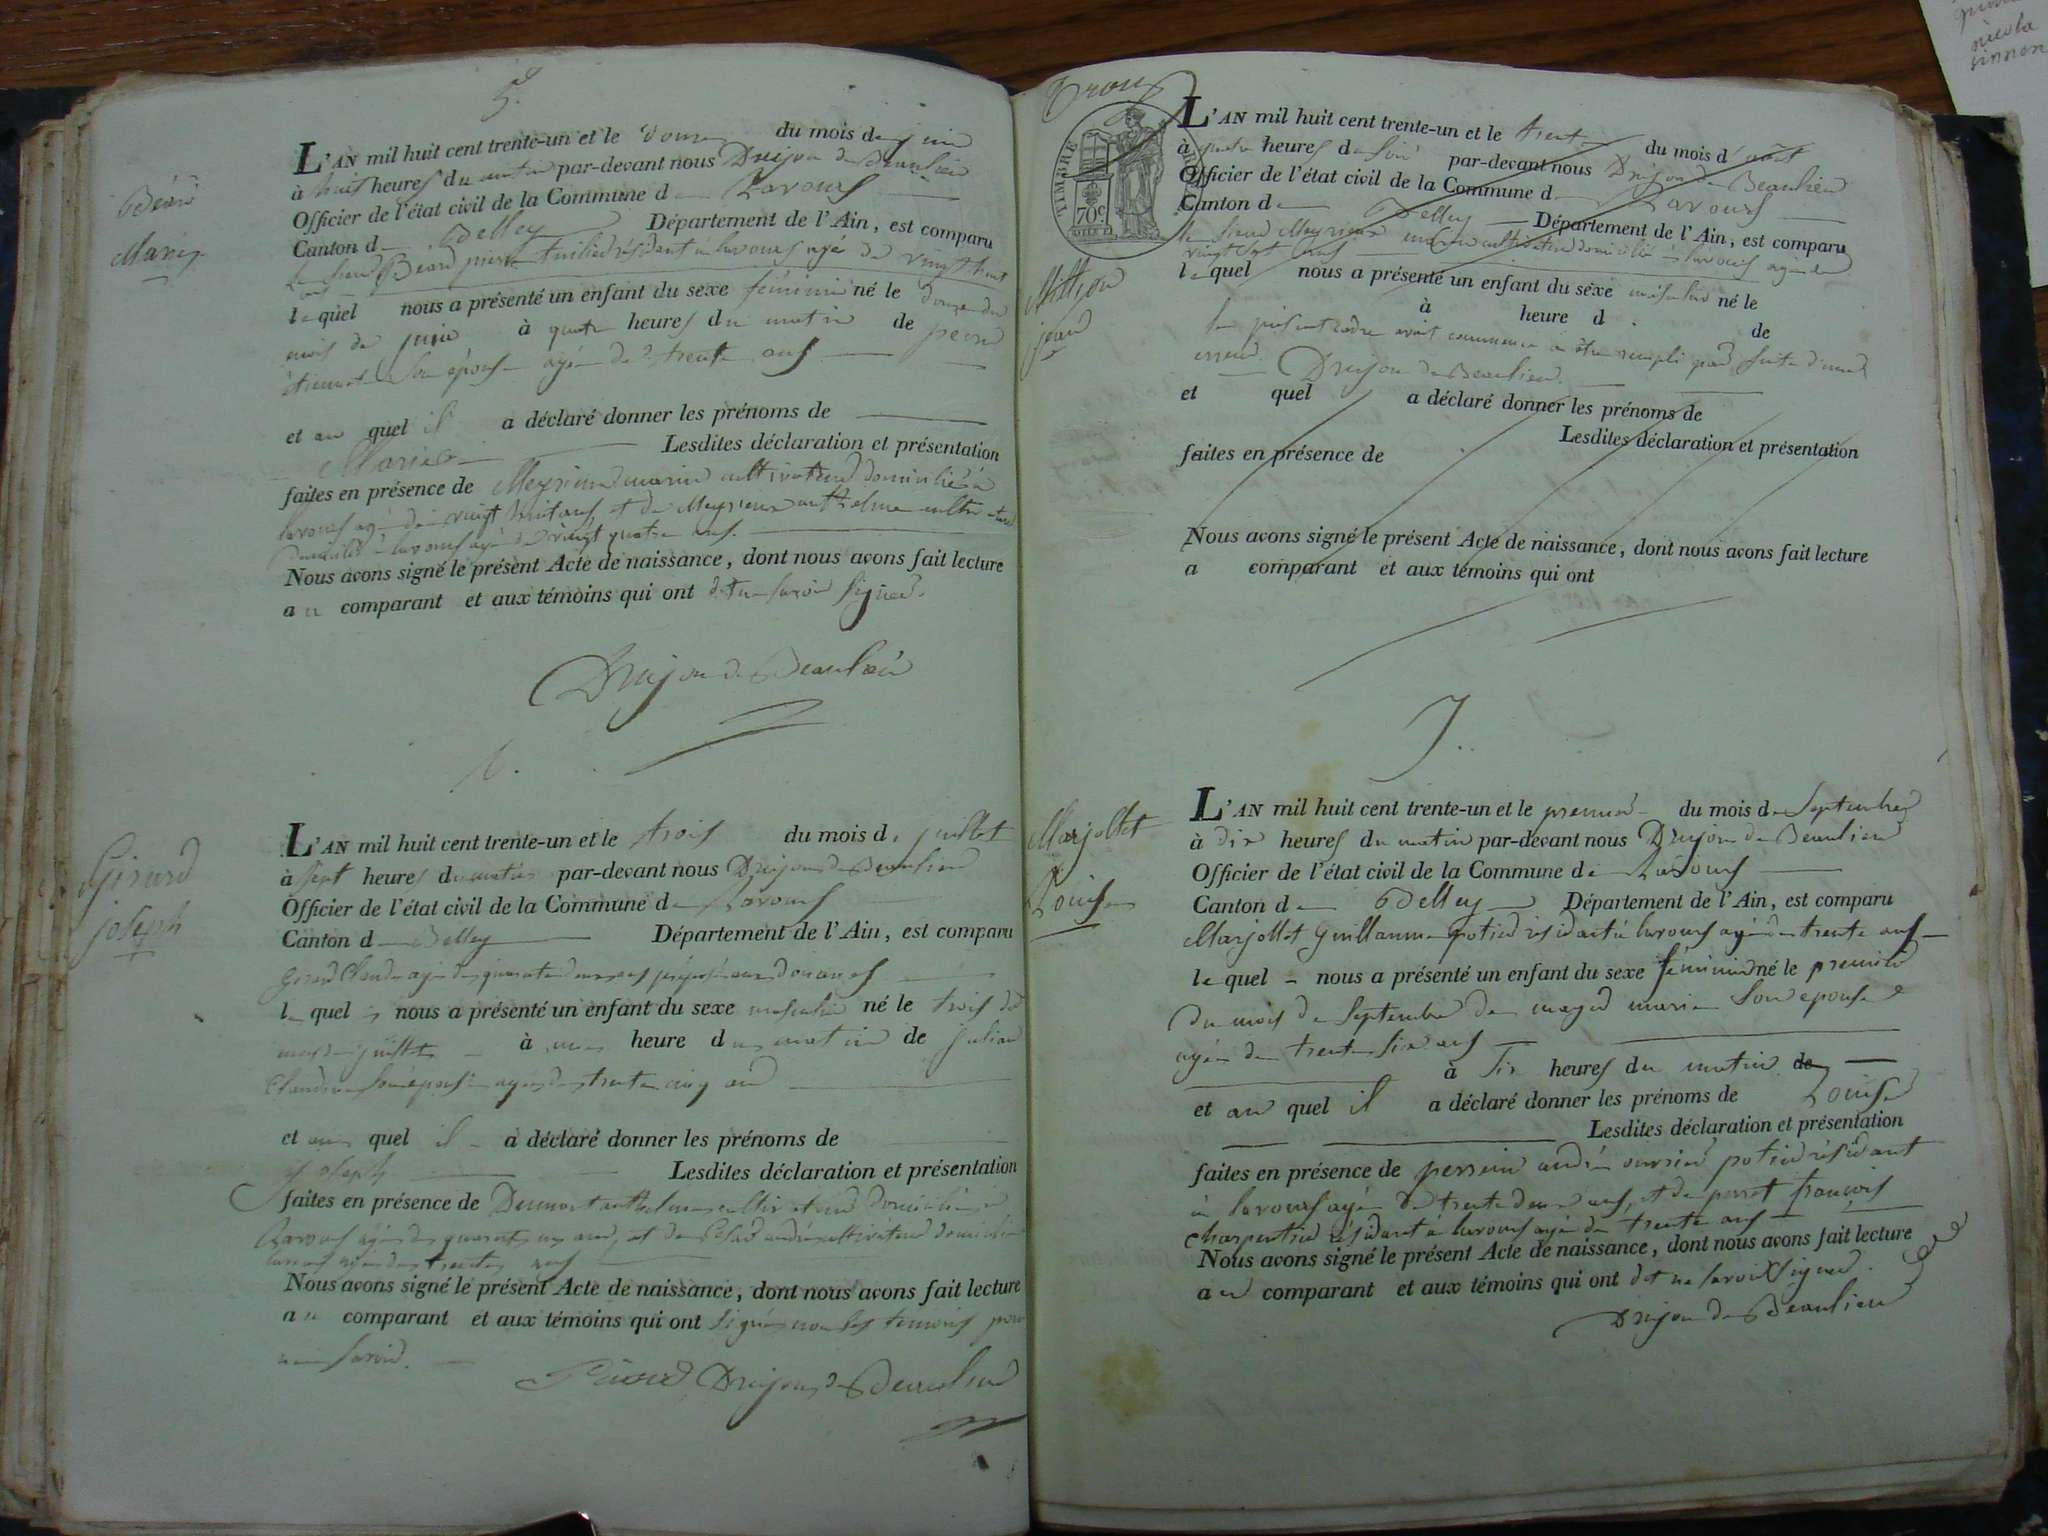 5.
Béard
Marie
L'AN mil huit cent trente-un et le douze du mois de juin
à huit heures du matin par-devant nous Drujon de Beaulieu
Officier de l'état civil de la Commune de Lavours
Canton de Belley Département de l'Ain, est comparu
le sieur Béard pierre tuilier résidant à lavours agé de vingt huit
ans
lequel nous a présenté un enfant du sexe féminin né le douze du
mois de juin à quatre heures du matin de
étiennette son épouse agée de trente ans
et au quel il a déclaré donner les prénoms de
Marie Lesdites déclaration et présentation
faites en présence de Meyrieux marin cultivateur domicilié à
lavours agé de vingt huit ans, et de Meyrieux anthelme cultivateur
domicilié à lavours agé de vingt quatre ans.
Nous avons signé le présent Acte de naissance, dont nous avons fait lecture
au comparant et aux témoins qui ont dit ne savoir signer.
Drujon de Beaulieu
6.
Girard
joseph
L'AN mil huit cent trente-un et le trois du mois de juillet
à sept heures du matin par-devant nous Drujon de Beaulieu
Officier de l'état civil de la Commune de Lavours
Canton de Belley Département de l'Ain, est comparu
Girard Claude agé de quarante deux ans préposé aux douanes
lequel nous a présenté un enfant du sexe masculin né le trois du
mois de juillet à une heure du matin de
Claudine son épouse agée de trente cinq ans
et au quel il a déclaré donner les prénoms de
joseph Lesdites déclaration et présentation
faites en présence de anthelme cultivateur domicilié à
Lavours agé de quarante un ans, et de andré cultivateur domicilié
lavours agé de trente ans
Nous avons signé le présent Acte de naissance, dont nous avons fait lecture
au comparant et aux témoins qui ont signé non les témoins pour
ne savoir.
Girard Drujon de Beaulieu
TIMBRE ROYAL
70c
jean
L'AN mil huit cent trente-un et le trente du mois d'août
à quatre heures du soir par-devant nous Drujon de Beaulieu
Officier de l'état civil de la Commune de Lavours
Canton de Belley Département de l'Ain, est comparu
le sieur Meyrieux marin cultivateur domicilié à lavours agé de
vingt sept ans
lequel nous a présenté un enfant du sexe masculin né le
à heure d de
le présent cadre avait commencé à être rempli par suite d'une
erreur. Drujon de Beaulieu.
et quel a déclaré donner les prénoms de
Lesdites déclaration et présentation
faites en présence de
Nous avons signé le présent Acte de naissance, dont nous avons fait lecture
a comparant et aux témoins qui ont
7.
Marjollet
Louise
L'AN mil huit cent trente-un et le premier du mois de Septembre
à dix heures du matin par-devant nous Drujon de Beaulieu
Officier de l'état civil de la Commune de Lavours
Canton de Belley Département de l'Ain, est comparu
Marjollet Guillaume potier résidant à lavours agé de trente ans
lequel nous a présenté un enfant du sexe féminin né le premier
du mois de Septembre de marie son épouse
agée de trente six ans
à six heures du matin de
et au quel il a déclaré donner les prénoms de Louise
Lesdites déclaration et présentation
faites en présence de perrein andré ouvrier potier résidant
à lavours agé de trente deux ans, et de perret françois
charpentier résidant à lavours agé de trente ans
Nous avons signé le présent Acte de naissance, dont nous avons fait lecture
au comparant et aux témoins qui ont dit ne savoir signer.
Drujon de Beaulieu